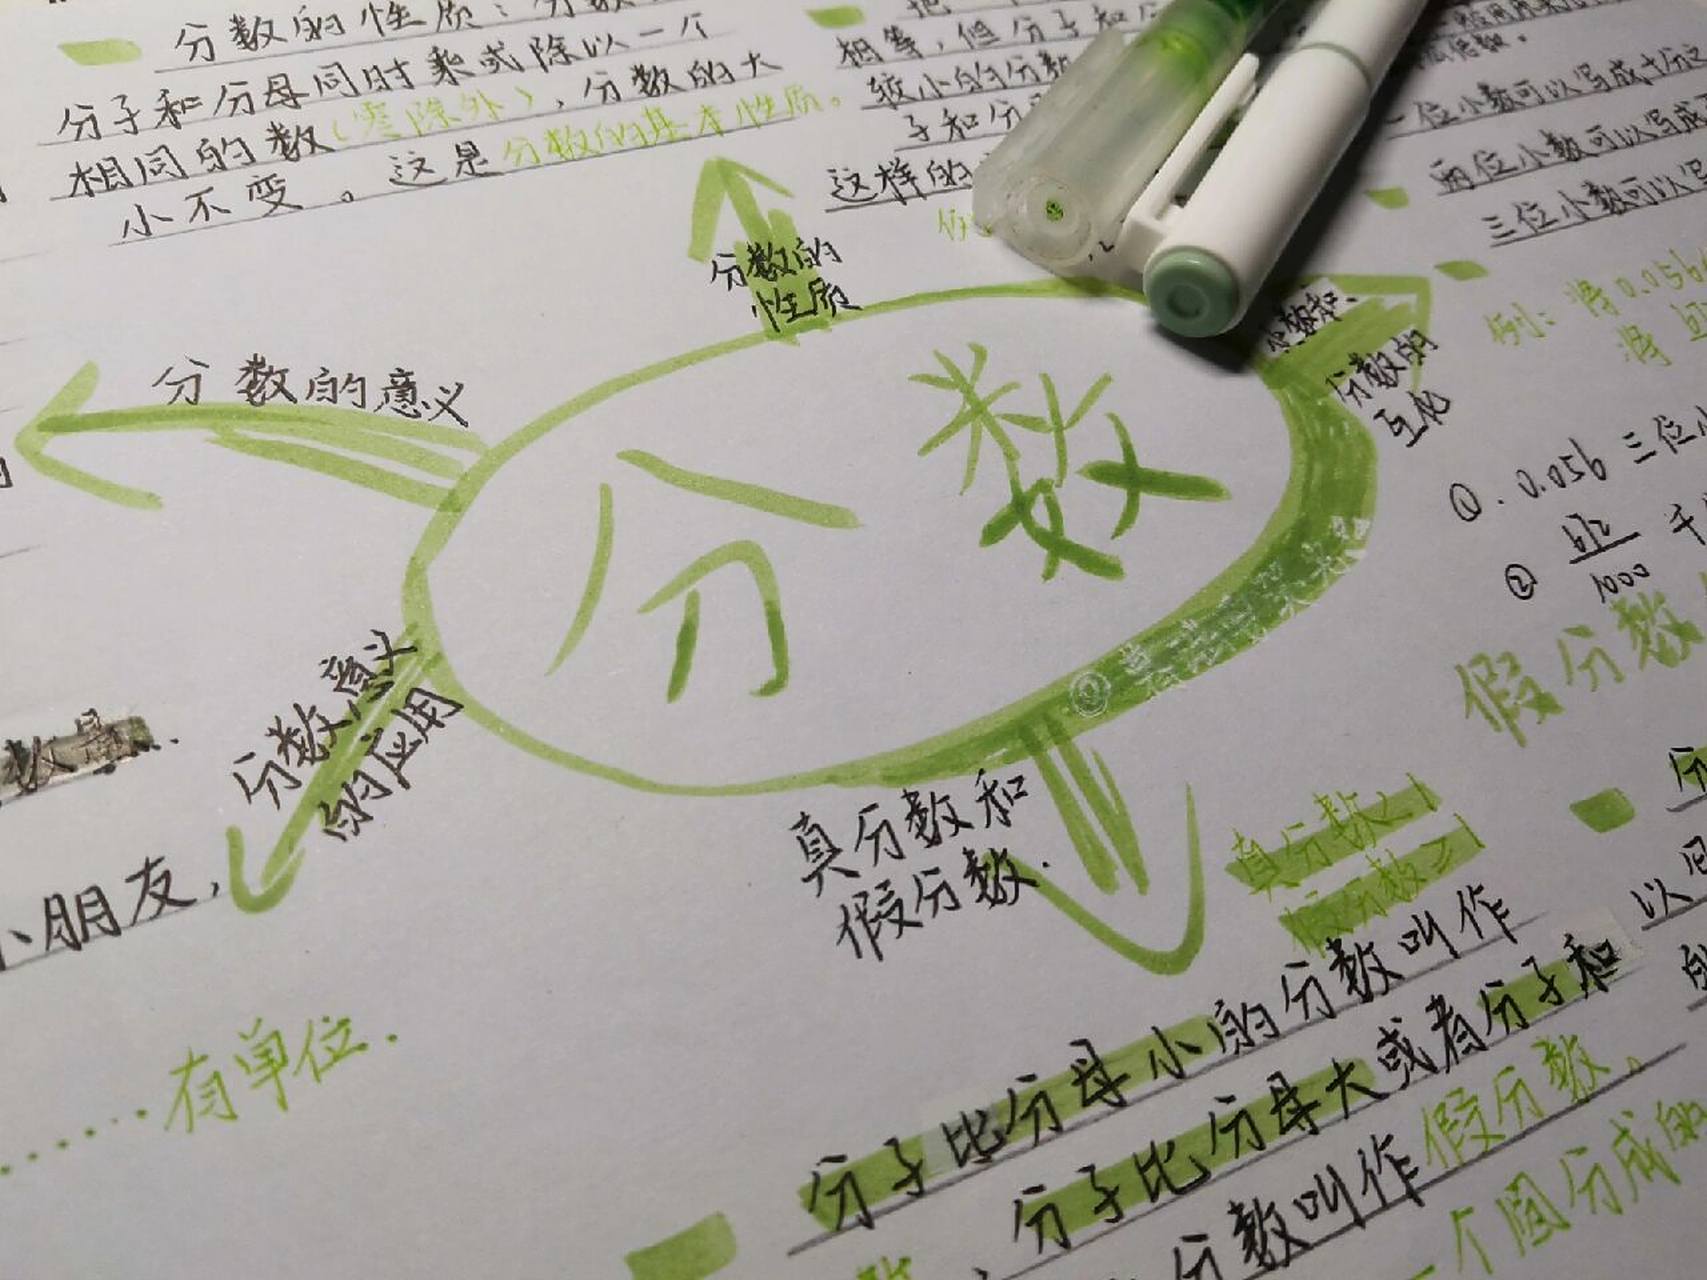 分数的性质：分数
分子和分母同时乘或除以一个
相同的数（零除外），分数的大
小不变。这是分数的基本性质。
相等，但分子和分
较小的分数
子和分
这样的
一位小数可以写成十分之
两位小数可以写成
三位小数可以写
例：将0.056
将
分数的
性质
分数的意义
小数和
分数的
互化
分数
① 0.056 三位小
②
1000
千
假分数
分数意义
的应用
真分数和
假分数
真分数<1
假分数≥1
小朋友，
有单位.
分子比分母小的分数叫作
分子比分母大或者分子和
分数叫作假分数。
一个圆分成的
以
的